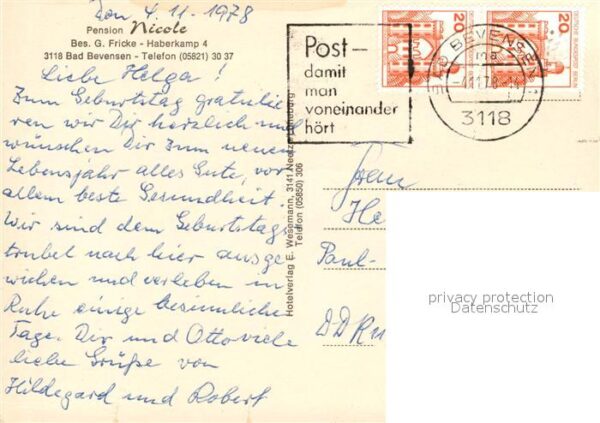 Den 4.11.1978
Pension Nicole
Bes. G. Fricke - Haberkamp 4
3118 Bad Bevensen - Telefon (05821) 30 37
Liebe Helga!
Zum Geburtstag gratulie
ren wir Dir herzlich und
wünschen Dir zum neuen
Lebensjahr alles Gute, vor
allem beste Gesundheit.
Wir sind dem Geburtstags
trubel nach hier ausge
wichen und verleben in
Ruhe einige besinnliche
Tage. Dir und Otto viele
liebe Grüße von
Hildegard und Robert
Hotelverlag E. Wesemann, 3141 Neetze/Lüneburg
Telefon (05850) 306
Post-
damit
man
voneinander
hört
20
20
DEUTSCHE BUNDESPOST BERLIN
BAD BEVENSEN 1
3118
Frau
He
Paul-
DDR
privacy protection
Datenschutz